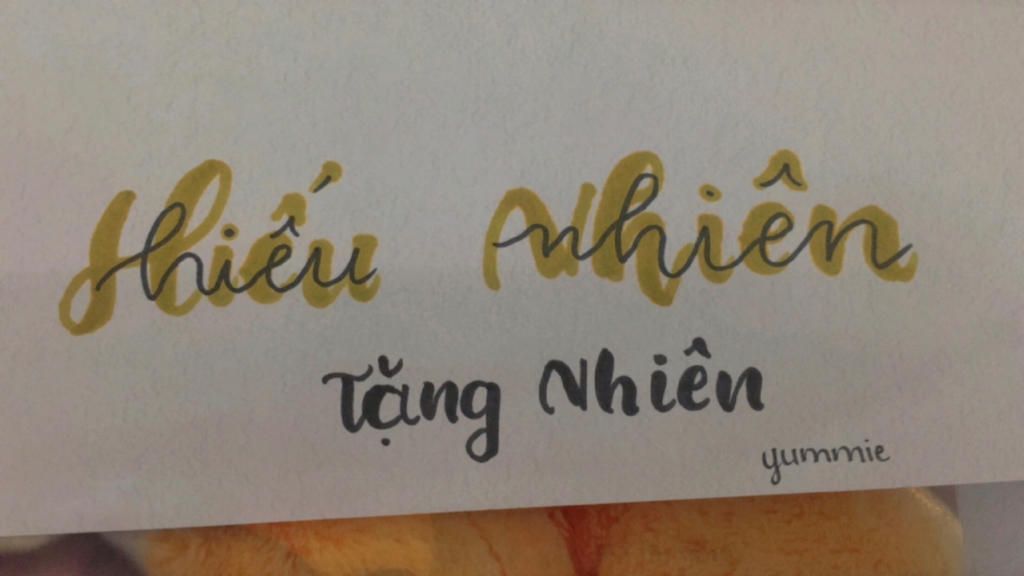 Hiếu Nhiên
Tặng Nhiên
yummie